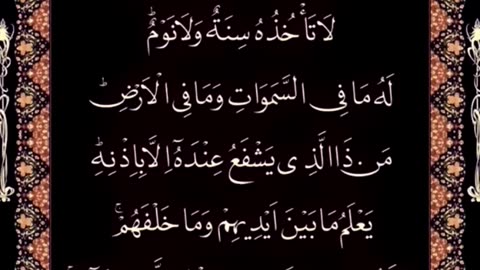 لَا تَأْخُذُهُ سِنَةٌ وَلَا نَوْمٌ ؕ
لَهُ مَا فِي السَّمَوَاتِ وَمَا فِي الْاَرْضِ ؕ
مَنْ ذَا الَّذِي يَشْفَعُ عِنْدَهٗٓ اِلَّا بِاِذْنِهٖ ؕ
يَعْلَمُ مَا بَيْنَ اَيْدِيهِمْ وَمَا خَلْفَهُمْ ۚ